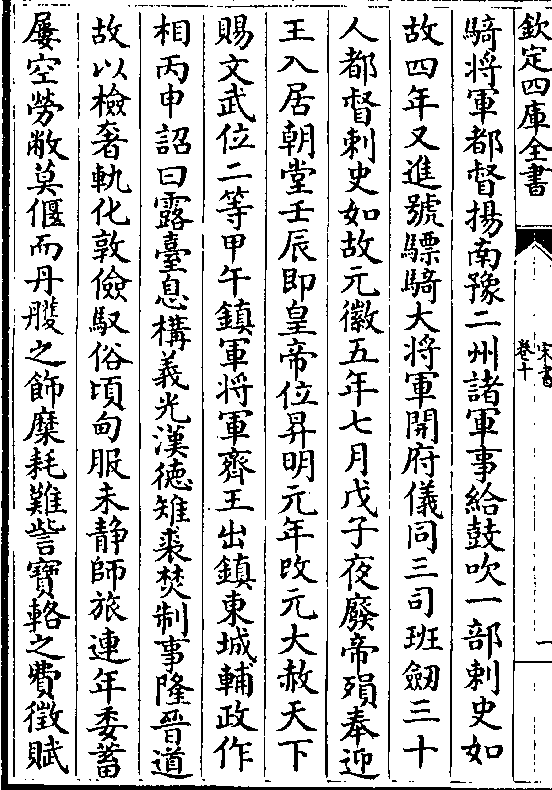 欽定四庫全書
宋書
卷十
一
騎將軍都督揚南豫二州諸軍事給鼓吹一部刺史如
故四年又進號驃騎大將軍開府儀同三司班劒三十
人都督刺史如故元徽五年七月戊子夜廢帝殞奉迎
王入居朝堂壬辰即皇帝位昇明元年改元大赦天下
賜文武位二等甲午鎮軍將軍齊王出鎮東城輔政作
相丙申詔曰露臺息構義光漢德雉裘焚制事隆晉道
故以檢奢軌化敦儉馭俗頃甸服未静師旅連年委蓄
屢空勞敝莫偃而丹雘之飾糜耗難訾寶輅之費徵賦